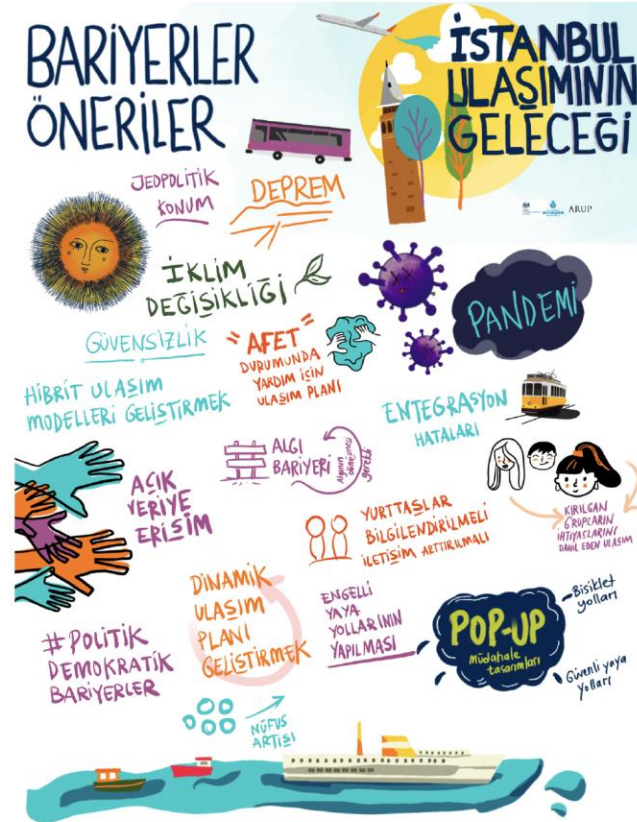 BARİYERLER
ÖNERİLER
İSTANBUL
ULAŞIMININ
GELECEĞİ
ARUP
JEOPOLİTİK
KONUM
DEPREM
İKLİM
DEĞİŞİKLİĞİ
PANDEMİ
GÜVENSİZLİK
"AFET"
DURUMUNDA
YARDIM İÇİN
ULAŞIM PLANI
HİBRİT ULAŞIM
MODELLERİ GELİŞTİRMEK
ENTEGRASYON
HATALARI
ALGI
BARİYERİ
Algının
dönüşmesi
gerekli
AÇIK
VERİYE
ERİŞİM
YURTTAŞLAR
BİLGİLENDİRİLMELİ
İLETİŞİM ARTTIRILMALI
KIRILGAN
GRUPLARIN
İHTİYAÇLARINI
DAHİL EDEN ULAŞIM
DİNAMİK
ULAŞIM
PLANI
GELİŞTİRMEK
ENGELLİ
YAYA
YOLLARININ
YAPILMASI
POP-UP
Müdahale
tasarımları
Bisiklet
yolları
Güvenli yaya
yolları
#POLİTİK
DEMOKRATİK
BARİYERLER
NÜFUS
ARTIŞI